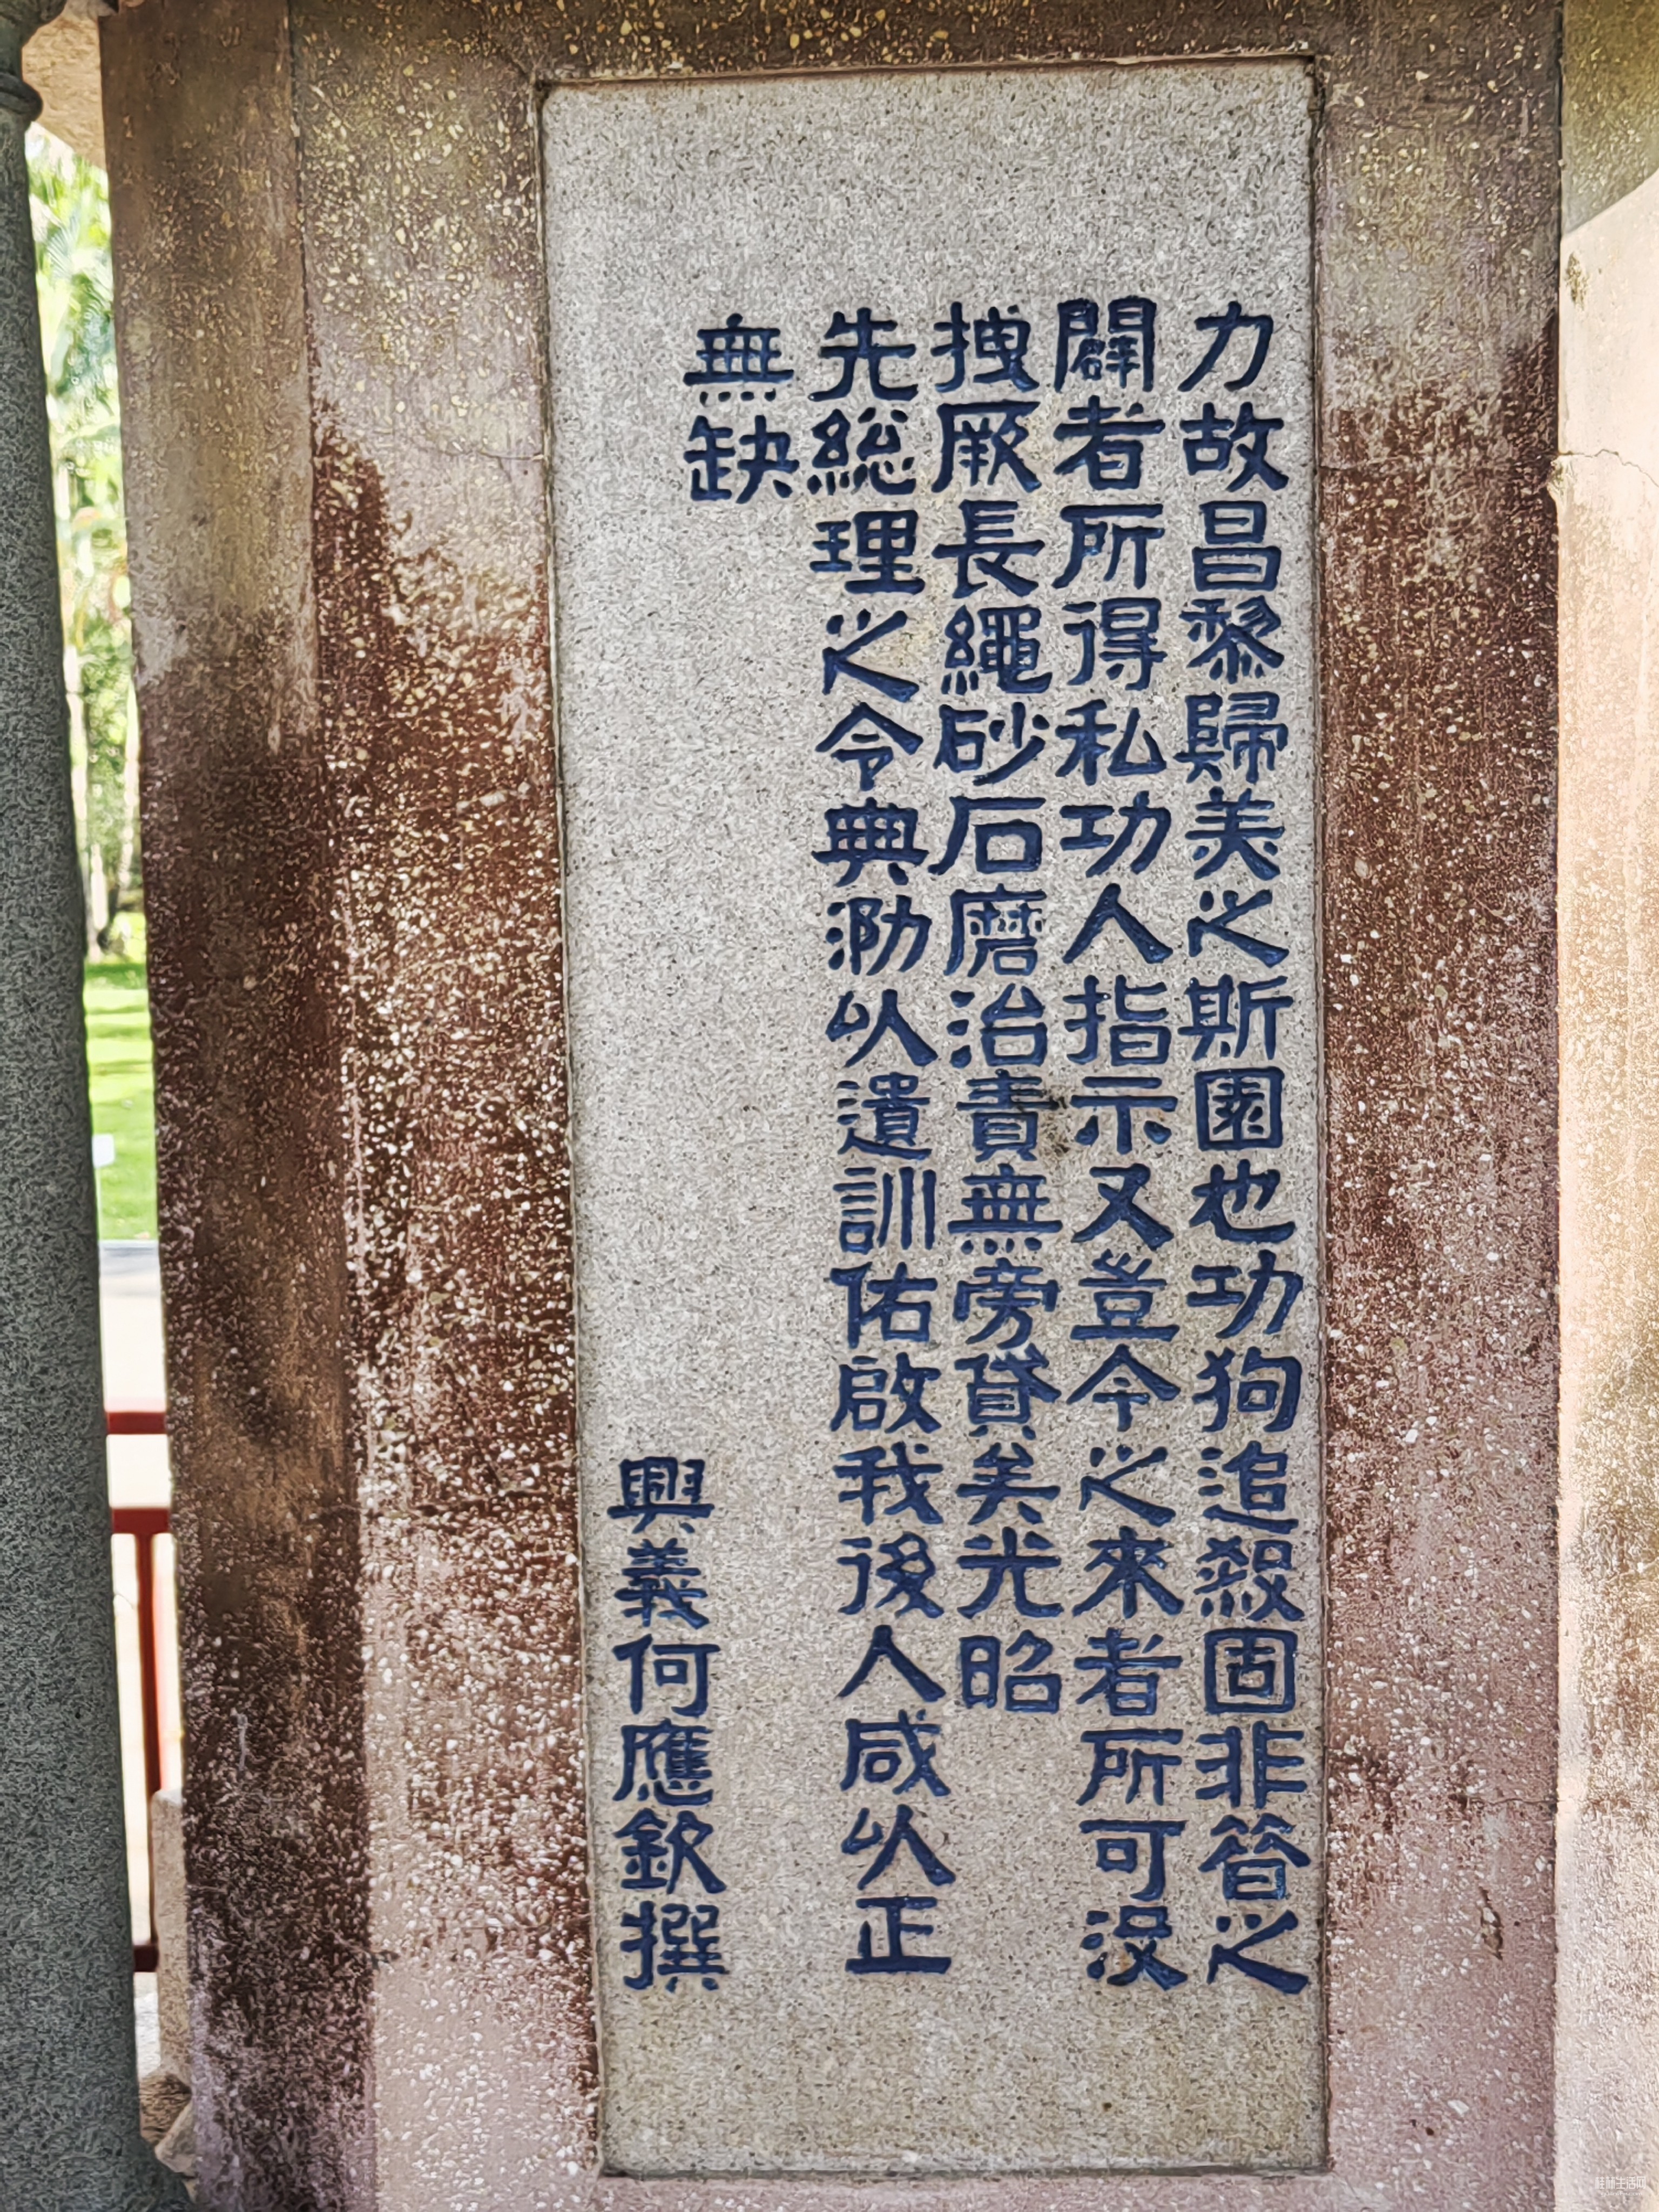 力故昌黎歸美之斯園也功狗追殺固非管之
闢者所得私功人指示又豈今之來者所可没
拽厥長繩砂石磨治責無旁貸矣光昭
先総理之令典泐以遺訓佑啟我後人咸以正
無缺
興義何應欽撰